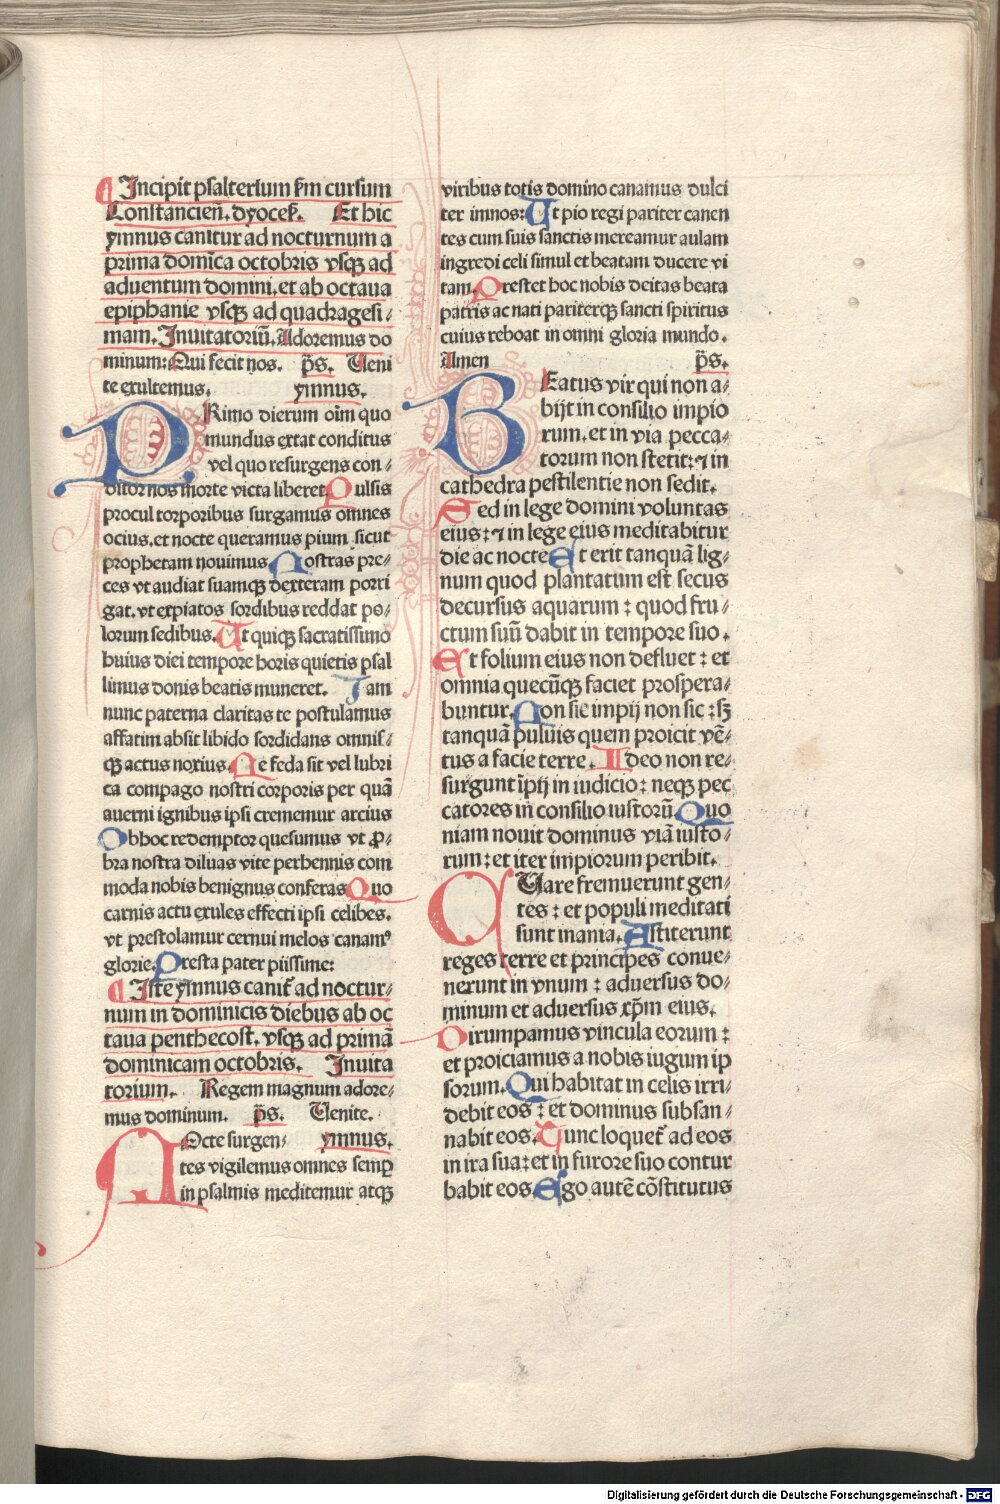 Incipit psalterium s̄m cursum
Constancien̄. dyoces̄. Et hic
ymnus canitur ad nocturnum a
prima domīca octobris vsqꝫ ad
aduentum domini. et ab octaua
epiphanie vsqꝫ ad quadragesi⸗
mam. Inuitatoriū. Adoremus do
minum: Qui fecit nos. p̄s. Ueni
te exultemus. ymnus.
PRimo dierum oīm quo
mundus extat conditus
vel quo resurgens con⸗
ditor nos morte victa liberet. Pulsis
procul torporibus surgamus omnes
ocius. et nocte queramus pium sicut
prophetam nouimus. Nostras pre⸗
ces vt audiat suamqꝫ dexteram porri
gat. vt expiatos sordibus reddat po⸗
lorum sedibus. Ut quiqꝫ sacratissimo
huius diei tempore horis quietis psal
limus donis beatis muneret. Iam
nunc paterna claritas te postulamus
affatim absit libido sordidans omnis⸗
qꝫ actus noxius. Ne feda sit vel lubri
ca compago nostri corporis per quā
auerni ignibus ipsi crememur arcius
Obhoc redemptor quesumus vt ꝓ⸗
bra nostra diluas vite perhennis com
moda nobis benignus conferas Quo
carnis actu exules effecti ipsi celibes.
vt prestolamur cernui melos canamꝰ
glorie. Presta pater piissime:
Iste ymnus canit̄ ad noctur⸗
num in dominicis diebus ab oc
taua penthecost. vsqꝫ ad primā
dominicam octobris. Inuita
torium. Regem magnum adore⸗
mus dominum. p̄s. Uenite.
NOcte surgen⸗ ymnus.
tes vigilemus omnes semꝑ
in psalmis meditemur atqꝫ
viribus totis domino canamus dulci
ter imnos: Ut pio regi pariter canen
tes cum suis sanctis mereamur aulam
ingredi celi simul et beatam ducere vi
tam. Prestet hoc nobis deitas beata
patris ac nati pariterqꝫ sancti spiritus
cuius reboat in omni gloria mundo.
Amen p̄s.
BEatus vir qui non a⸗
bijt in consilio impio
rum. et in via pecca⸗
torum non stetit: ⁊ in
cathedra pestilentie non sedit.
Sed in lege domini voluntas
eius: ⁊ in lege eius meditabitur
die ac nocte Et erit tanquā lig⸗
num quod plantatum est secus
decursus aquarum : quod fru⸗
ctum suū dabit in tempore suo.
Et folium eius non defluet : et
omnia quecūqꝫ faciet prospera⸗
buntur. Non sic impij non sic : sꝫ
tanquā puluis quem proicit vē⸗
tus a facie terre. Ideo non re⸗
surgunt īpij in iudicio: neqꝫ pec
catores in consilio iustorū Quo
niam nouit dominus viā iusto⸗
rum : et iter impiorum peribit.
QUare fremuerunt gen⸗
tes : et populi meditati
sunt inania. Astiterunt
reges terre et principes conue⸗
nerunt in vnum : aduersus do⸗
minum et aduersus xp̄m eius.
Dirumpamus vincula eorum :
et proiciamus a nobis iugum ip
sorum. Qui habitat in celis irri⸗
debit eos : et dominus subsan⸗
nabit eos. Tunc loquet̄ ad eos
in ira sua: et in furore suo contur
babit eos. Ego autē cōstitutus
Digitalisierung gefördert durch die Deutsche Forschungsgemeinschaft - DFG